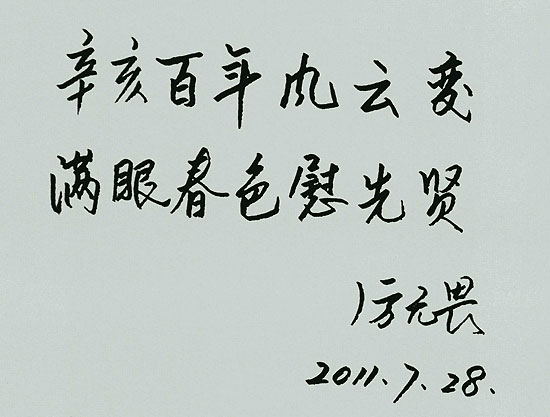 辛亥百年风云变
满眼春色慰先贤
厉无畏
2011.7.28.